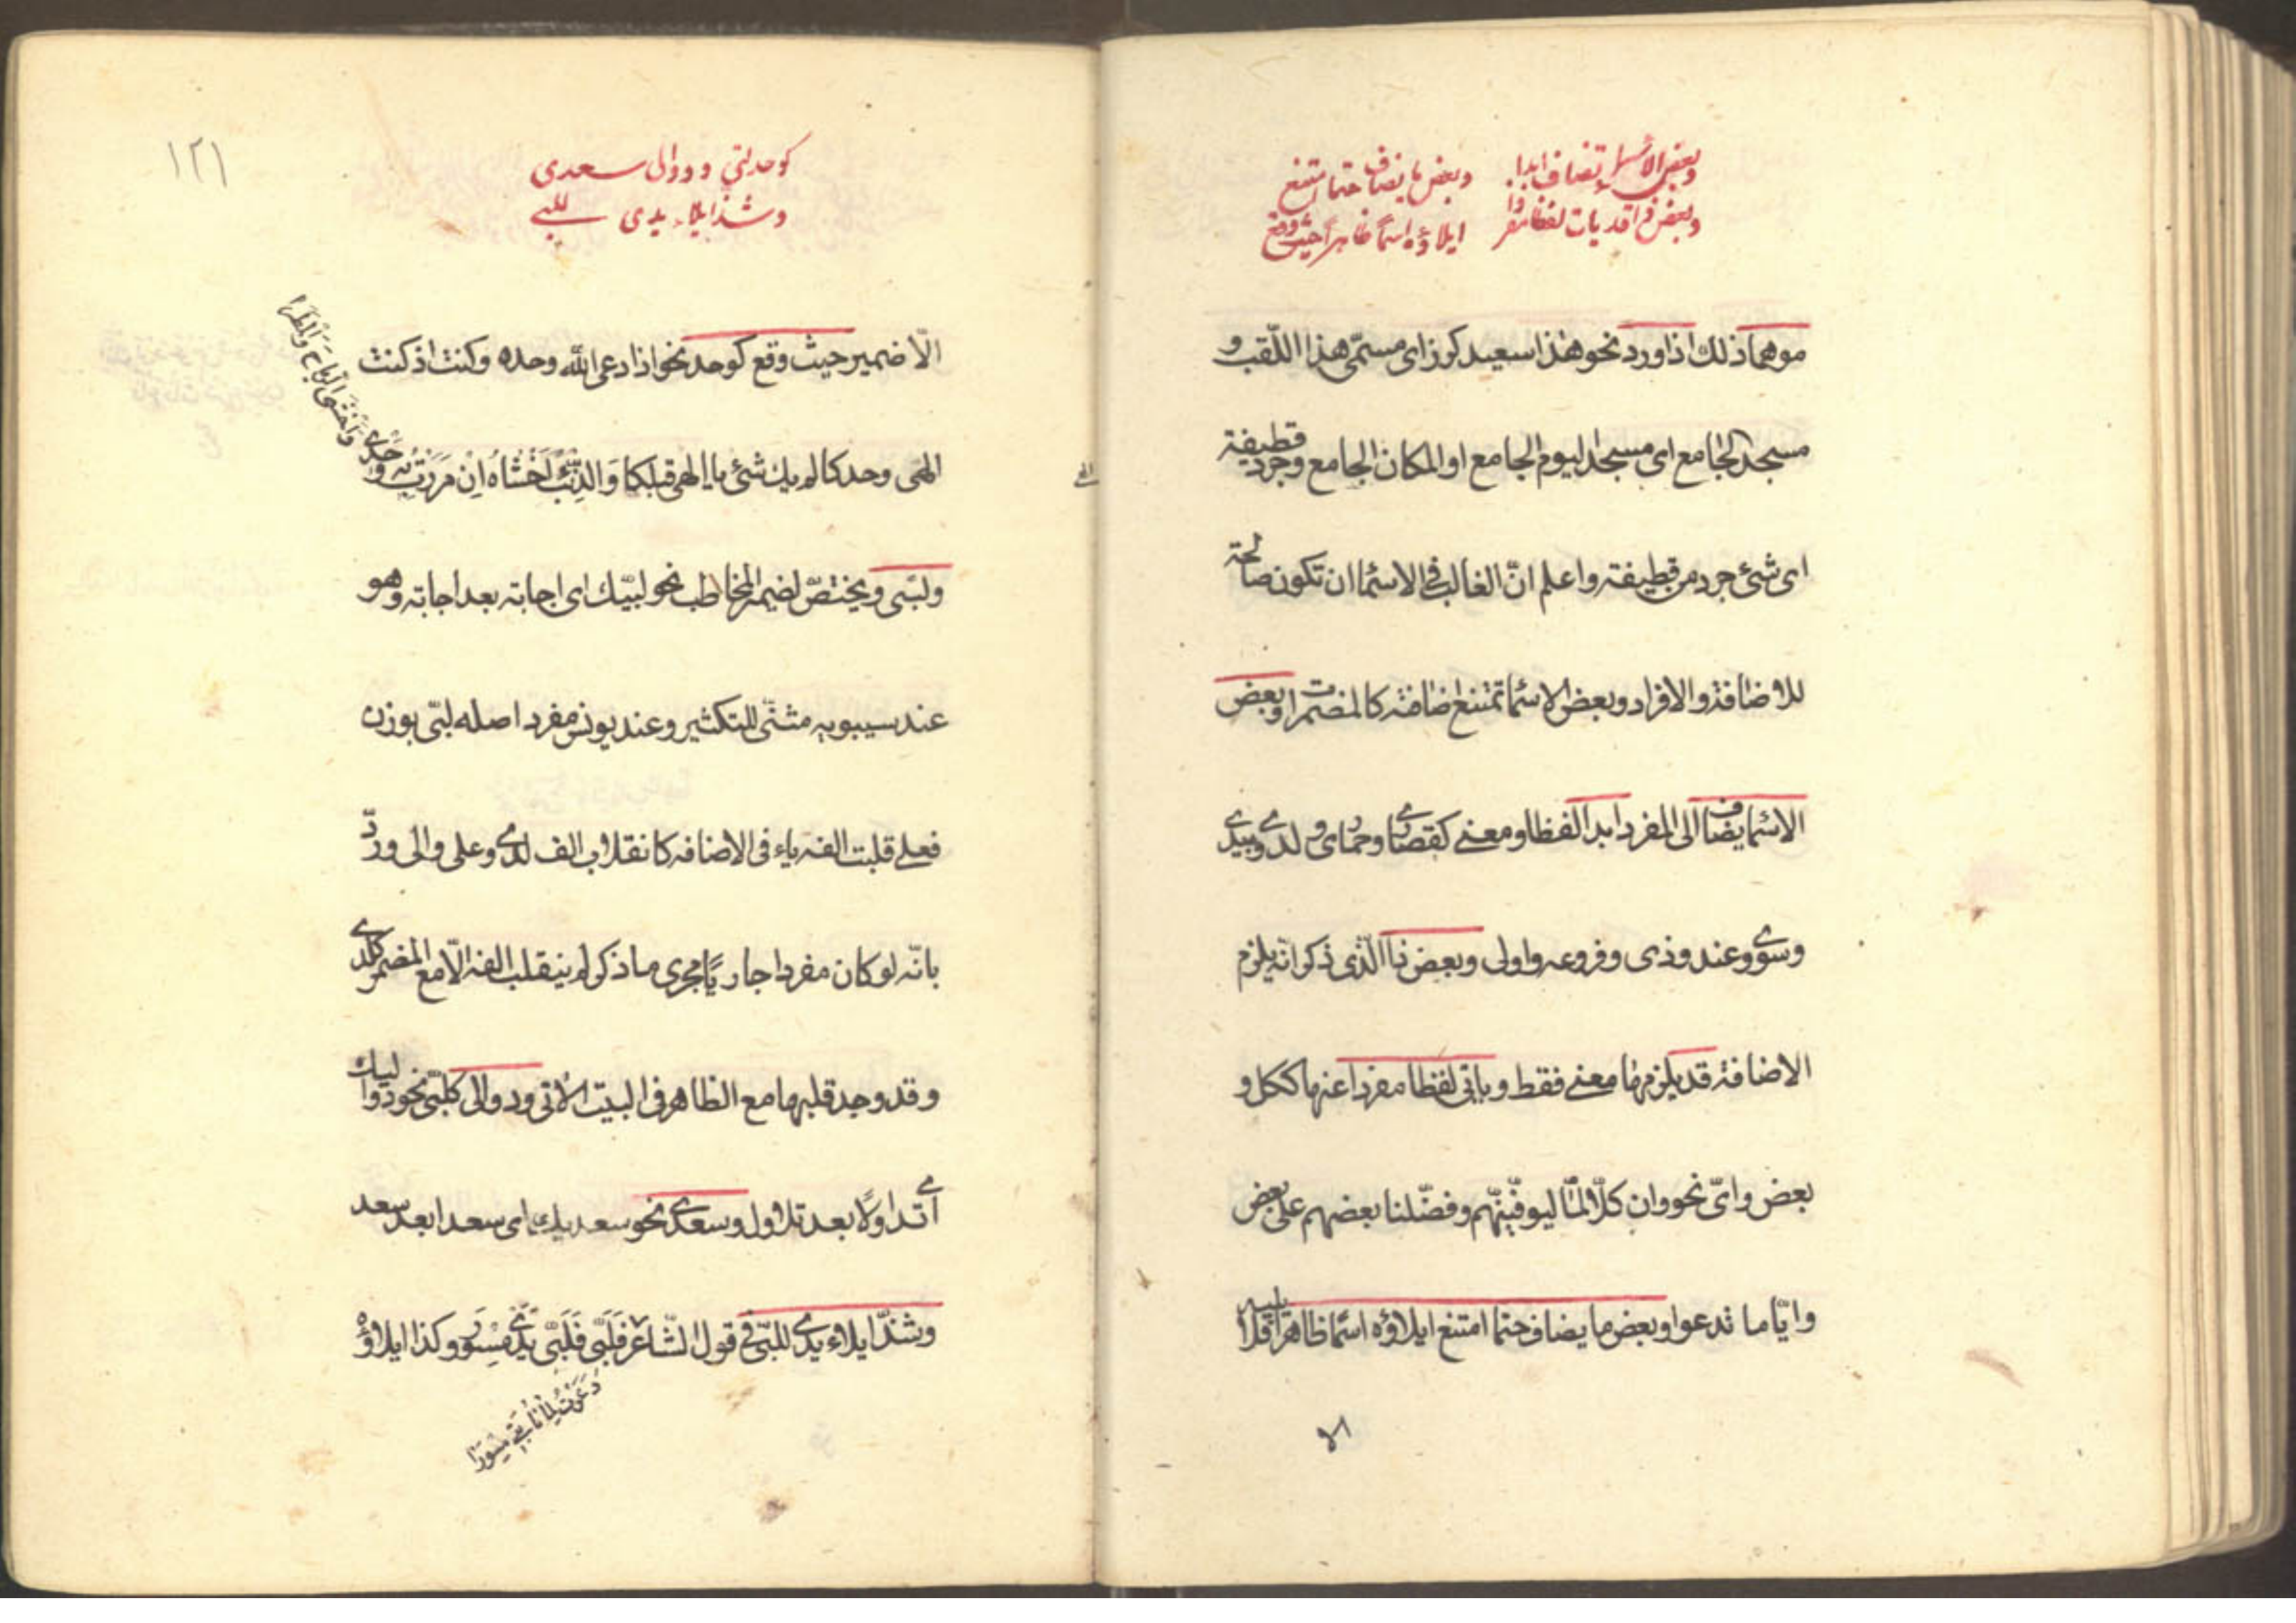 وبعض الأسماء تضاف ابدا وبعض ما يضاف حتما امتنع
وبعض ذا قد يات لفظا مفردا ايلاؤه اسما ظاهرا حيث وقع
موهما ذلك اذا ورد نحو هذا سعيد كرز اى مسمّى هذا اللّقب و
مسجد الجامع اى مسجد اليوم الجامع او المكان الجامع وجرد قطيفة
اى شئ جرد من قطيفة واعلم انّ الغالب فى الاسما ان تكون صالحة
للاضافة والافراد وبعض الاسما تمتنع اضافته كالمضمرات وبعض
الاسما يضاف الى المفرد ابدا لفظا ومعنى كقصارى وحمادى ولدى وبيدى
وسوى وعند وذى وفروعه واولى وبعض ذا الّذى ذكر انّه يلزم
الاضافة قد يلزمها معنى فقط وياتى لفظا مفردا عنها ككل و
بعض واىّ نحو وان كلّا لمّا ليوفّينّهم وفضّلنا بعضهم على بعض
وايّا ما تدعوا وبعض ما يضاف حتما امتنع ايلاؤه اسما ظاهرا فلا يليه
الا
١٢١
كوحد لبّي ودوالى سعدى
وشذ ايلاء يدى للبي
الّا ضمير حيث وقع كوحد نحو اذا دعى اللّه وحده وكنت اذ كنت
الهى وحدكا لم يك شئ يا الهى قبلكا وَالذِّئْبَ اَخْشَاهُ اِنْ مَرَرْتُ بِهِ وَحْدِى
وَاَخْشَى الرِّيَاحَ وَالْمَطَرَا
ولبّى ويختصّ لضمير المخاطب نحو لبّيك اى اجابته بعد اجابته وهو
عند سيبويه مثنّى للتكثير وعند يونس مفرد اصله لبّى بوزن
فعلى قلبت الفه ياء فى الاضافه كانقلاب الف لدى وعلى والى وردّ
بانّه لو كان مفردا جاريًا مجرى ما ذكر لم ينقلب الفه الّا مع المضمر كلدى
وقد وجد قلبها مع الظاهر فى البيت الاتى ودوالى كلبّى نحو دواليك
اى تداولا بعد تداول وسعدى نحو سعديك اى سعدا بعد سعد
وشذّ ايلاء يدى للبّى فى قول الشّاعر فَلَبَّى فَلَبَّىْ يَدَىْ مِسْوَرِ وكذا ايلاؤه
دَعَوْتُ لِمَا نَابَنِى مِسْوَرًا